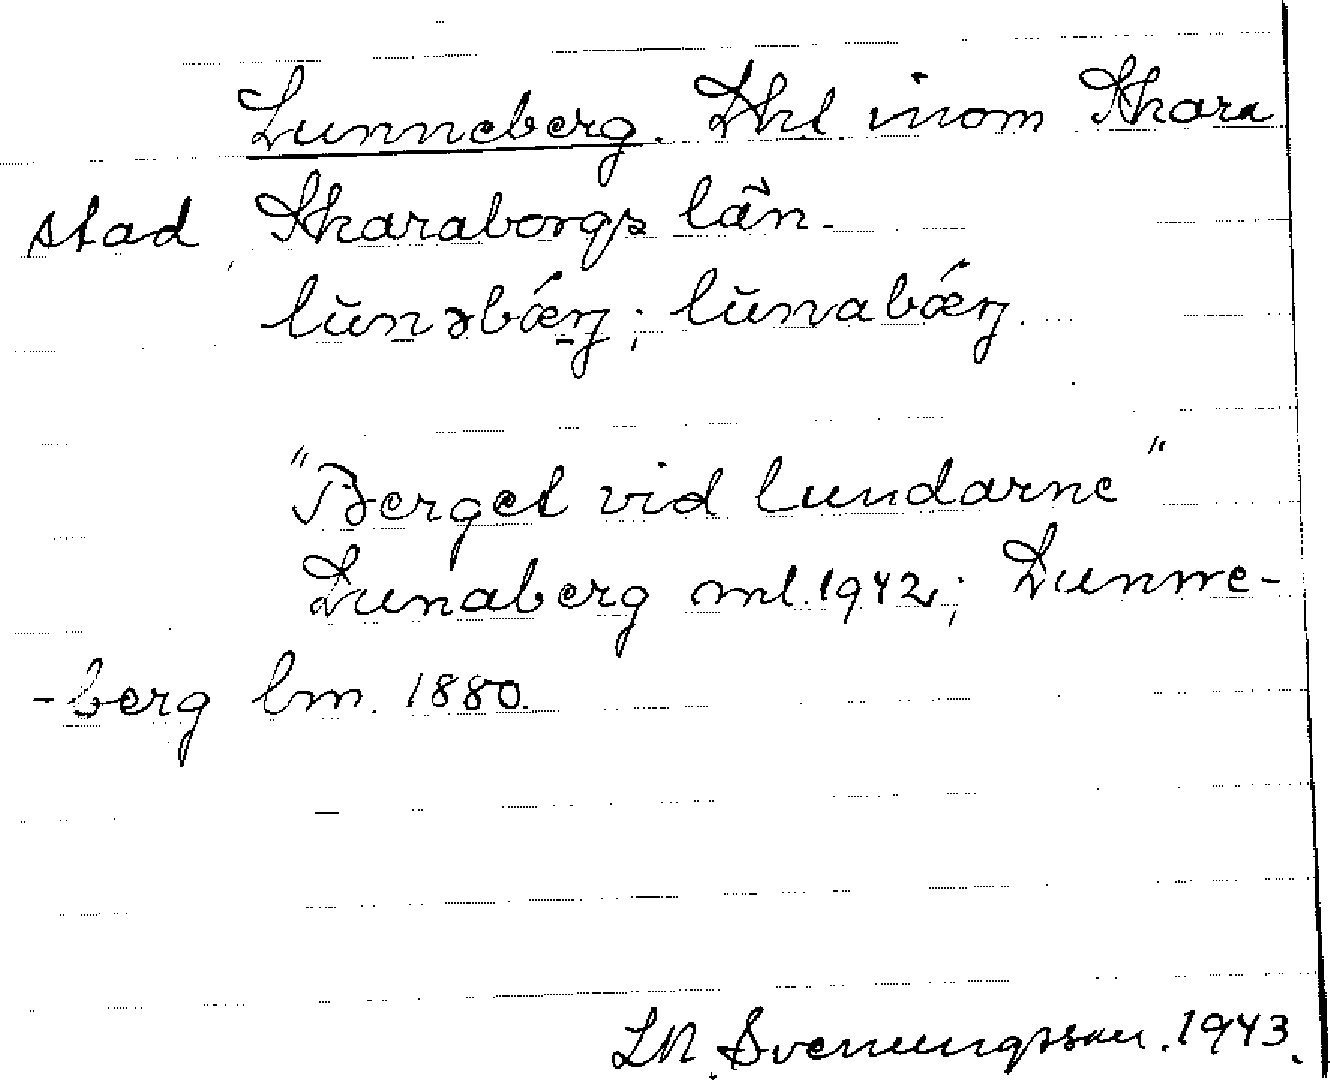 Lunneberg. Lht. inom Skara
stad, Skaraborgs län.
lŭnəbǽrj; lŭnabǽrj.
"Berget vid lundarne"
Lunaberg ml. 1942; Lunne-
-berg bm. 1880.
Svenungsson. 1943.